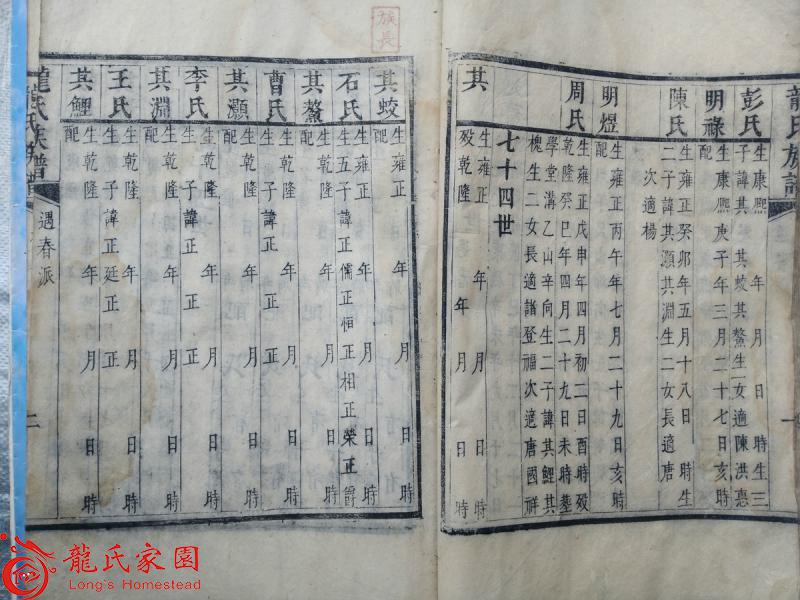 龍氏族譜
一
彭氏 生康熙 年 月 日 時生三
子諱其 其蛟其鰲生一女適陳洪惪
明祿 生康熙庚子年三月二十七日亥時
配
陳氏 生雍正癸卯年五月十八日 時生
二子諱其灝其淵生二女長適唐
次適楊
明煜 生雍正丙午年七月二十九日亥時
配
周氏 生雍正戊申年四月初二日酉時歿
乾隆癸巳年四月二十九日未時塟
學堂溝乙山辛向生二子諱其鯉其
槐生二女長適諸登福次適唐國祥
七十四世
其 生雍正 年 月 日 時
歿乾隆 年 月 日 時
族長
其蛟 生雍正 年 月 日 時
配
石氏 生五子諱正儒正恒正相正榮正爵
其鰲 生乾隆 年 月 日 時
配
曹氏 生 子諱正 正
其灝 生乾隆 年 月 日 時
配
李氏 生 子諱正 正
其淵 生乾隆 年 月 日 時
配
王氏 生 子諱正延正 正
其鯉 生乾隆 年 月 日 時
配
龍氏族譜
遇春派
二
龍氏家園
Long's Homestead